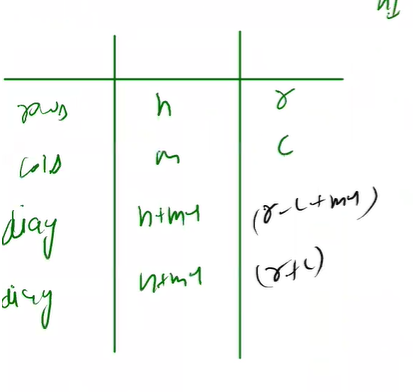 rows n r
cols m c
diag n+m-1 (r-c+m-1)
diag n+m-1 (r+c)